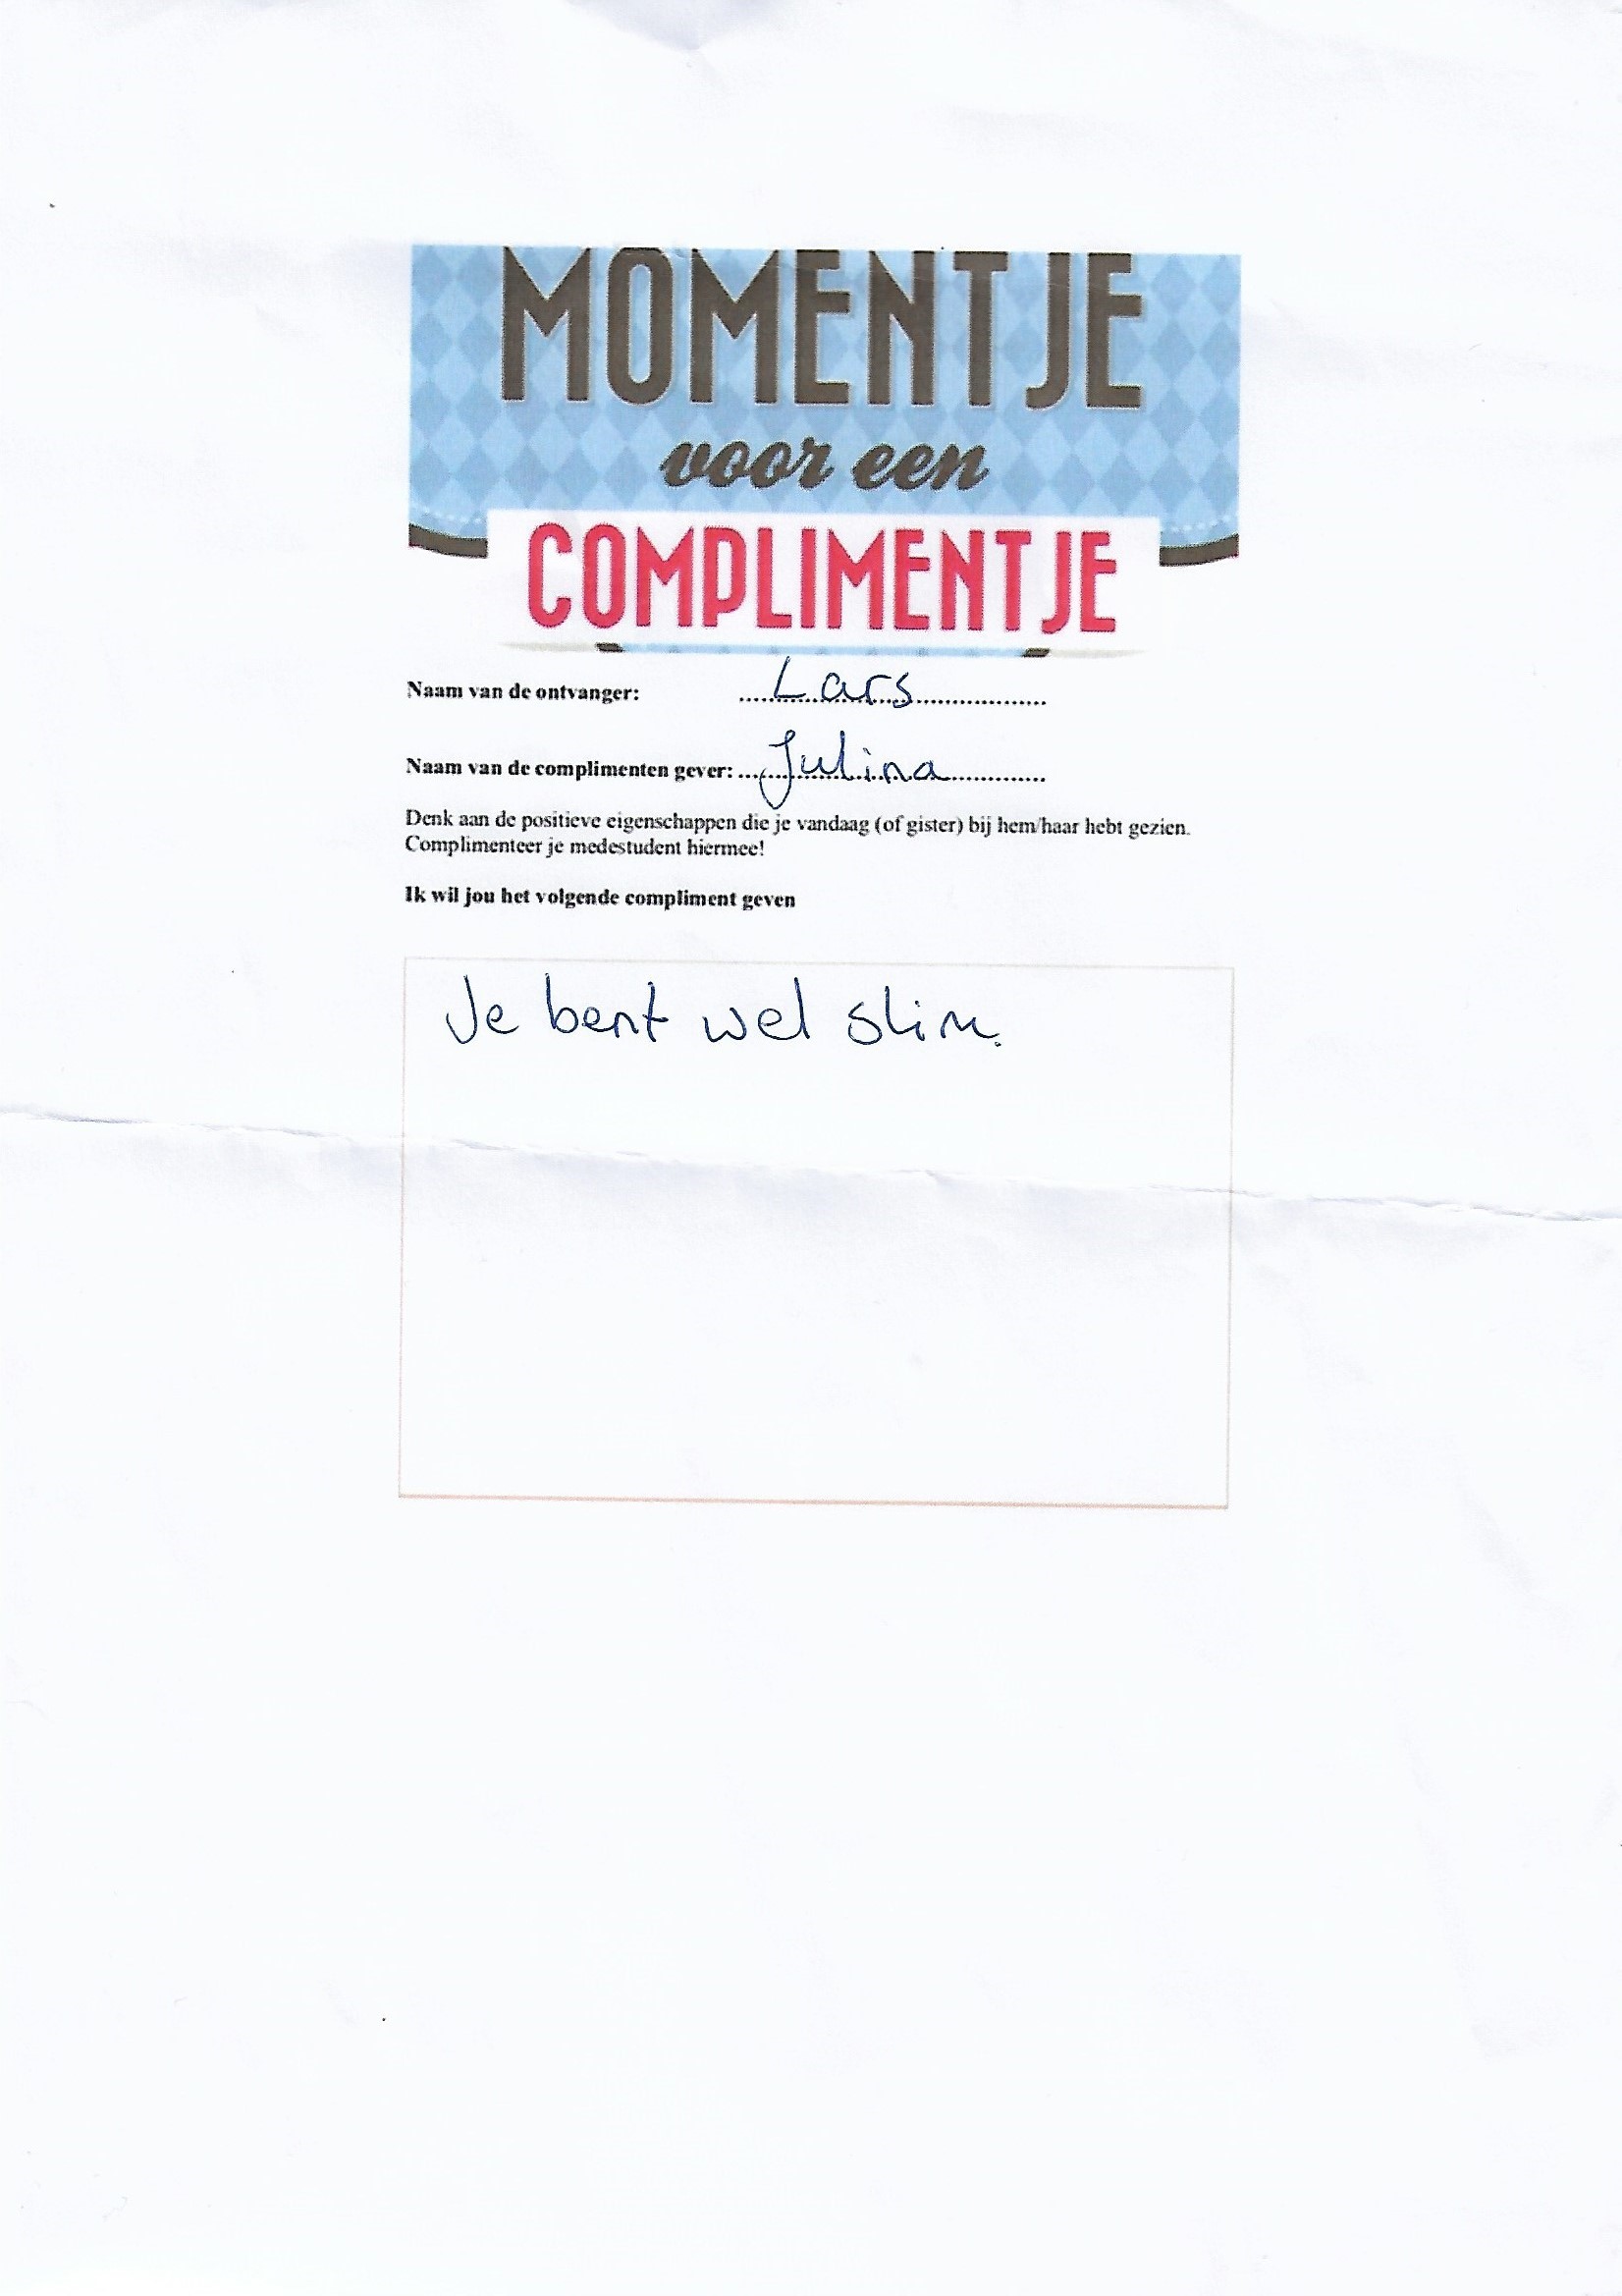 MOMENTJE
voor een
COMPLIMENTJE
Naam van de ontvanger: ........Lars........
Naam van de complimenten gever: ........Julina........
Denk aan de positieve eigenschappen die je vandaag (of gister) bij hem/haar hebt gezien.
Complimenteer je medestudent hiermee!
Ik wil jou het volgende compliment geven
Je bent wel slim.